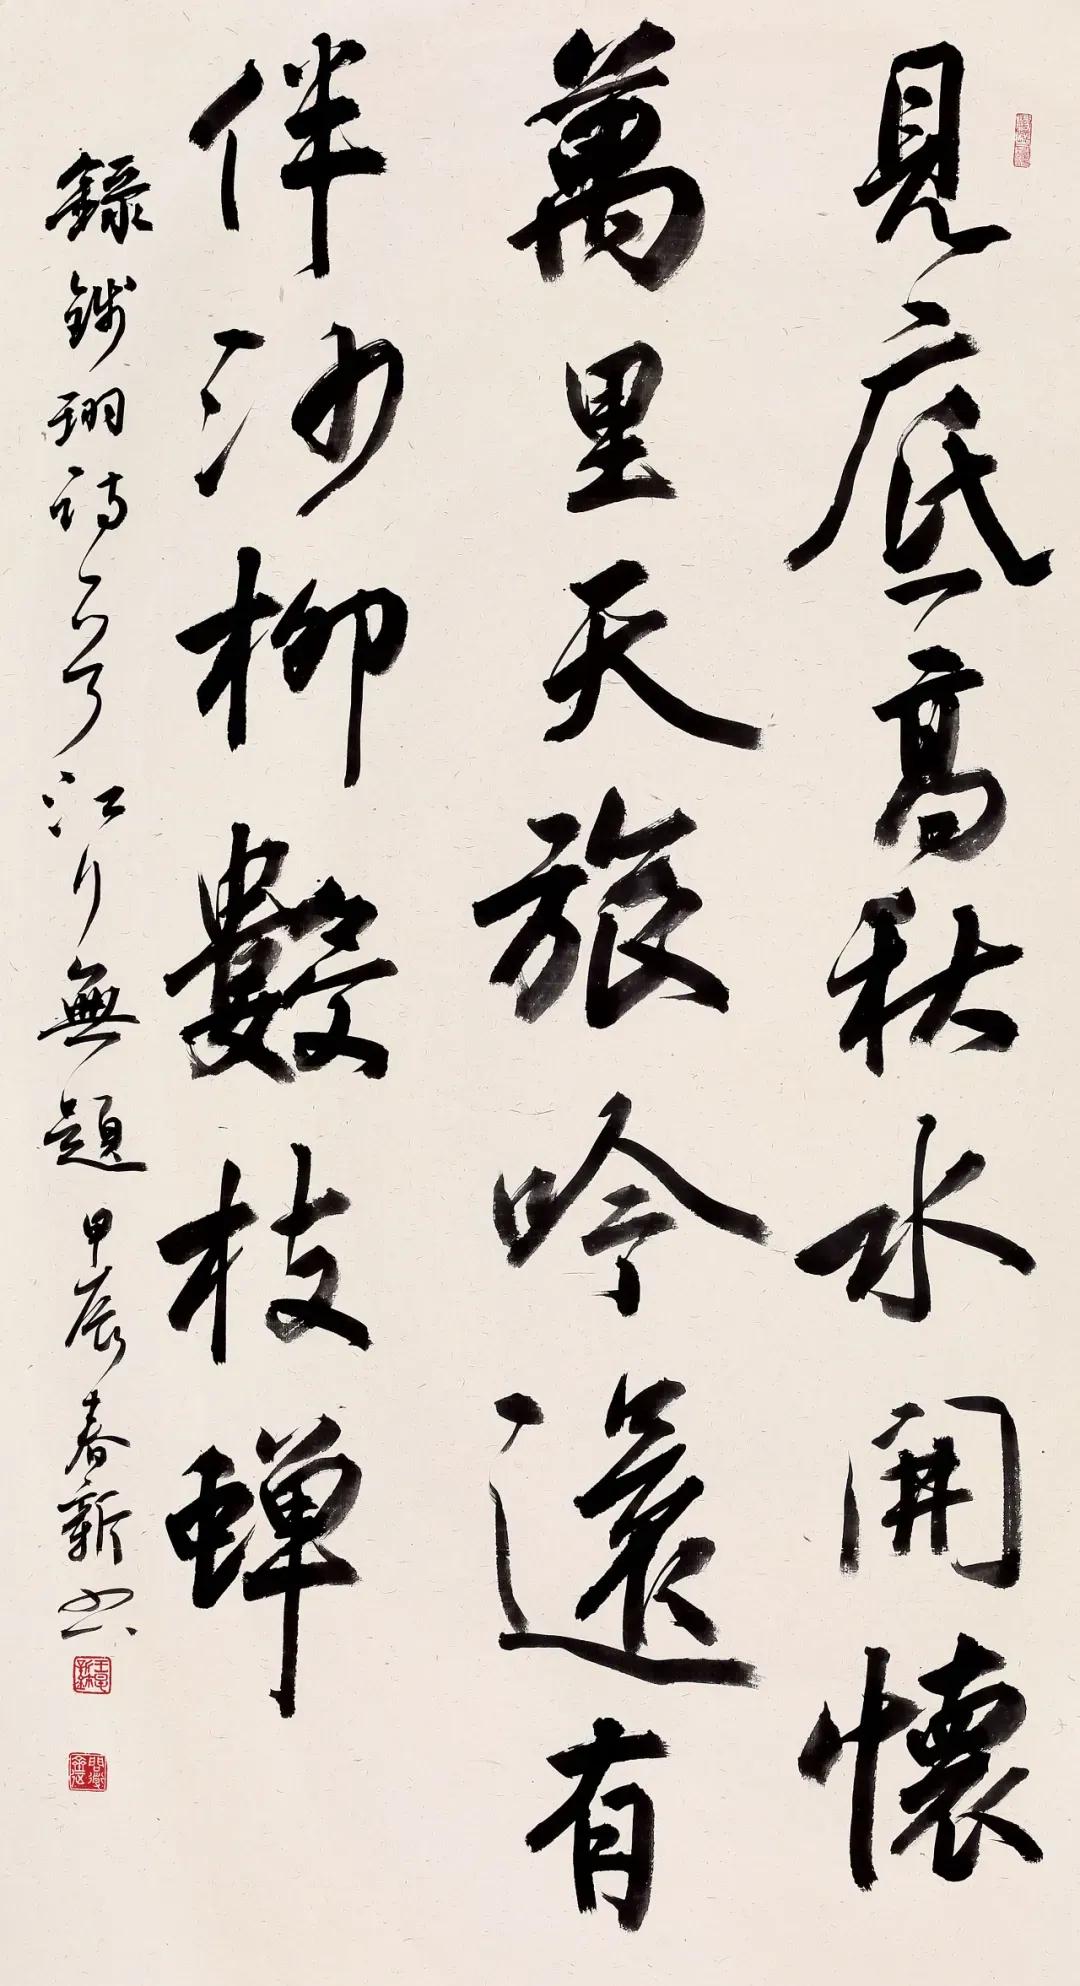 見底高秋水開懷
萬里天旅吟還有
伴沙柳數枝蟬
錄錢珝詩江行無題甲辰春新书